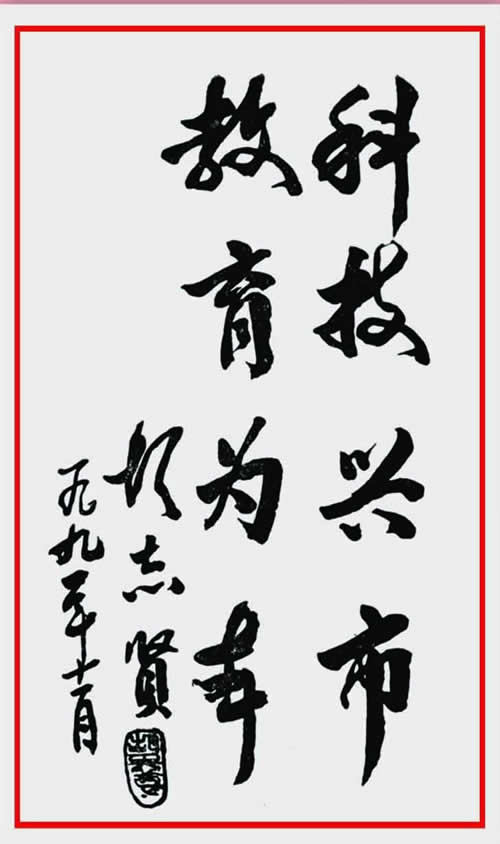 科技兴市
教育为
志贤
一九九一年十一月